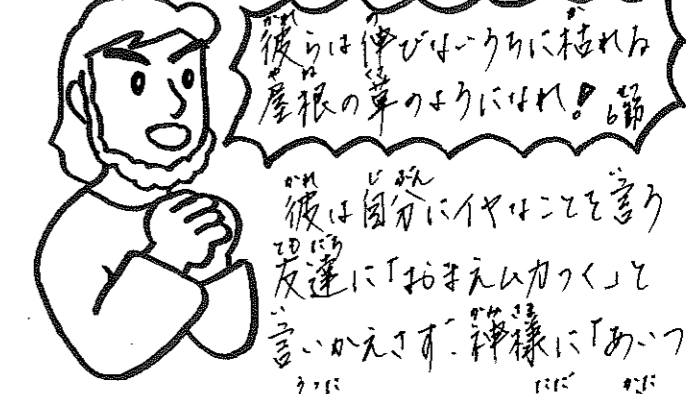 彼らは伸びないうちに枯れる
屋根の草のようになれ! 6節
彼は自分にイヤなことを言う
友達に「おまえムカつく」と
言いかえさず、神様に「あいつ